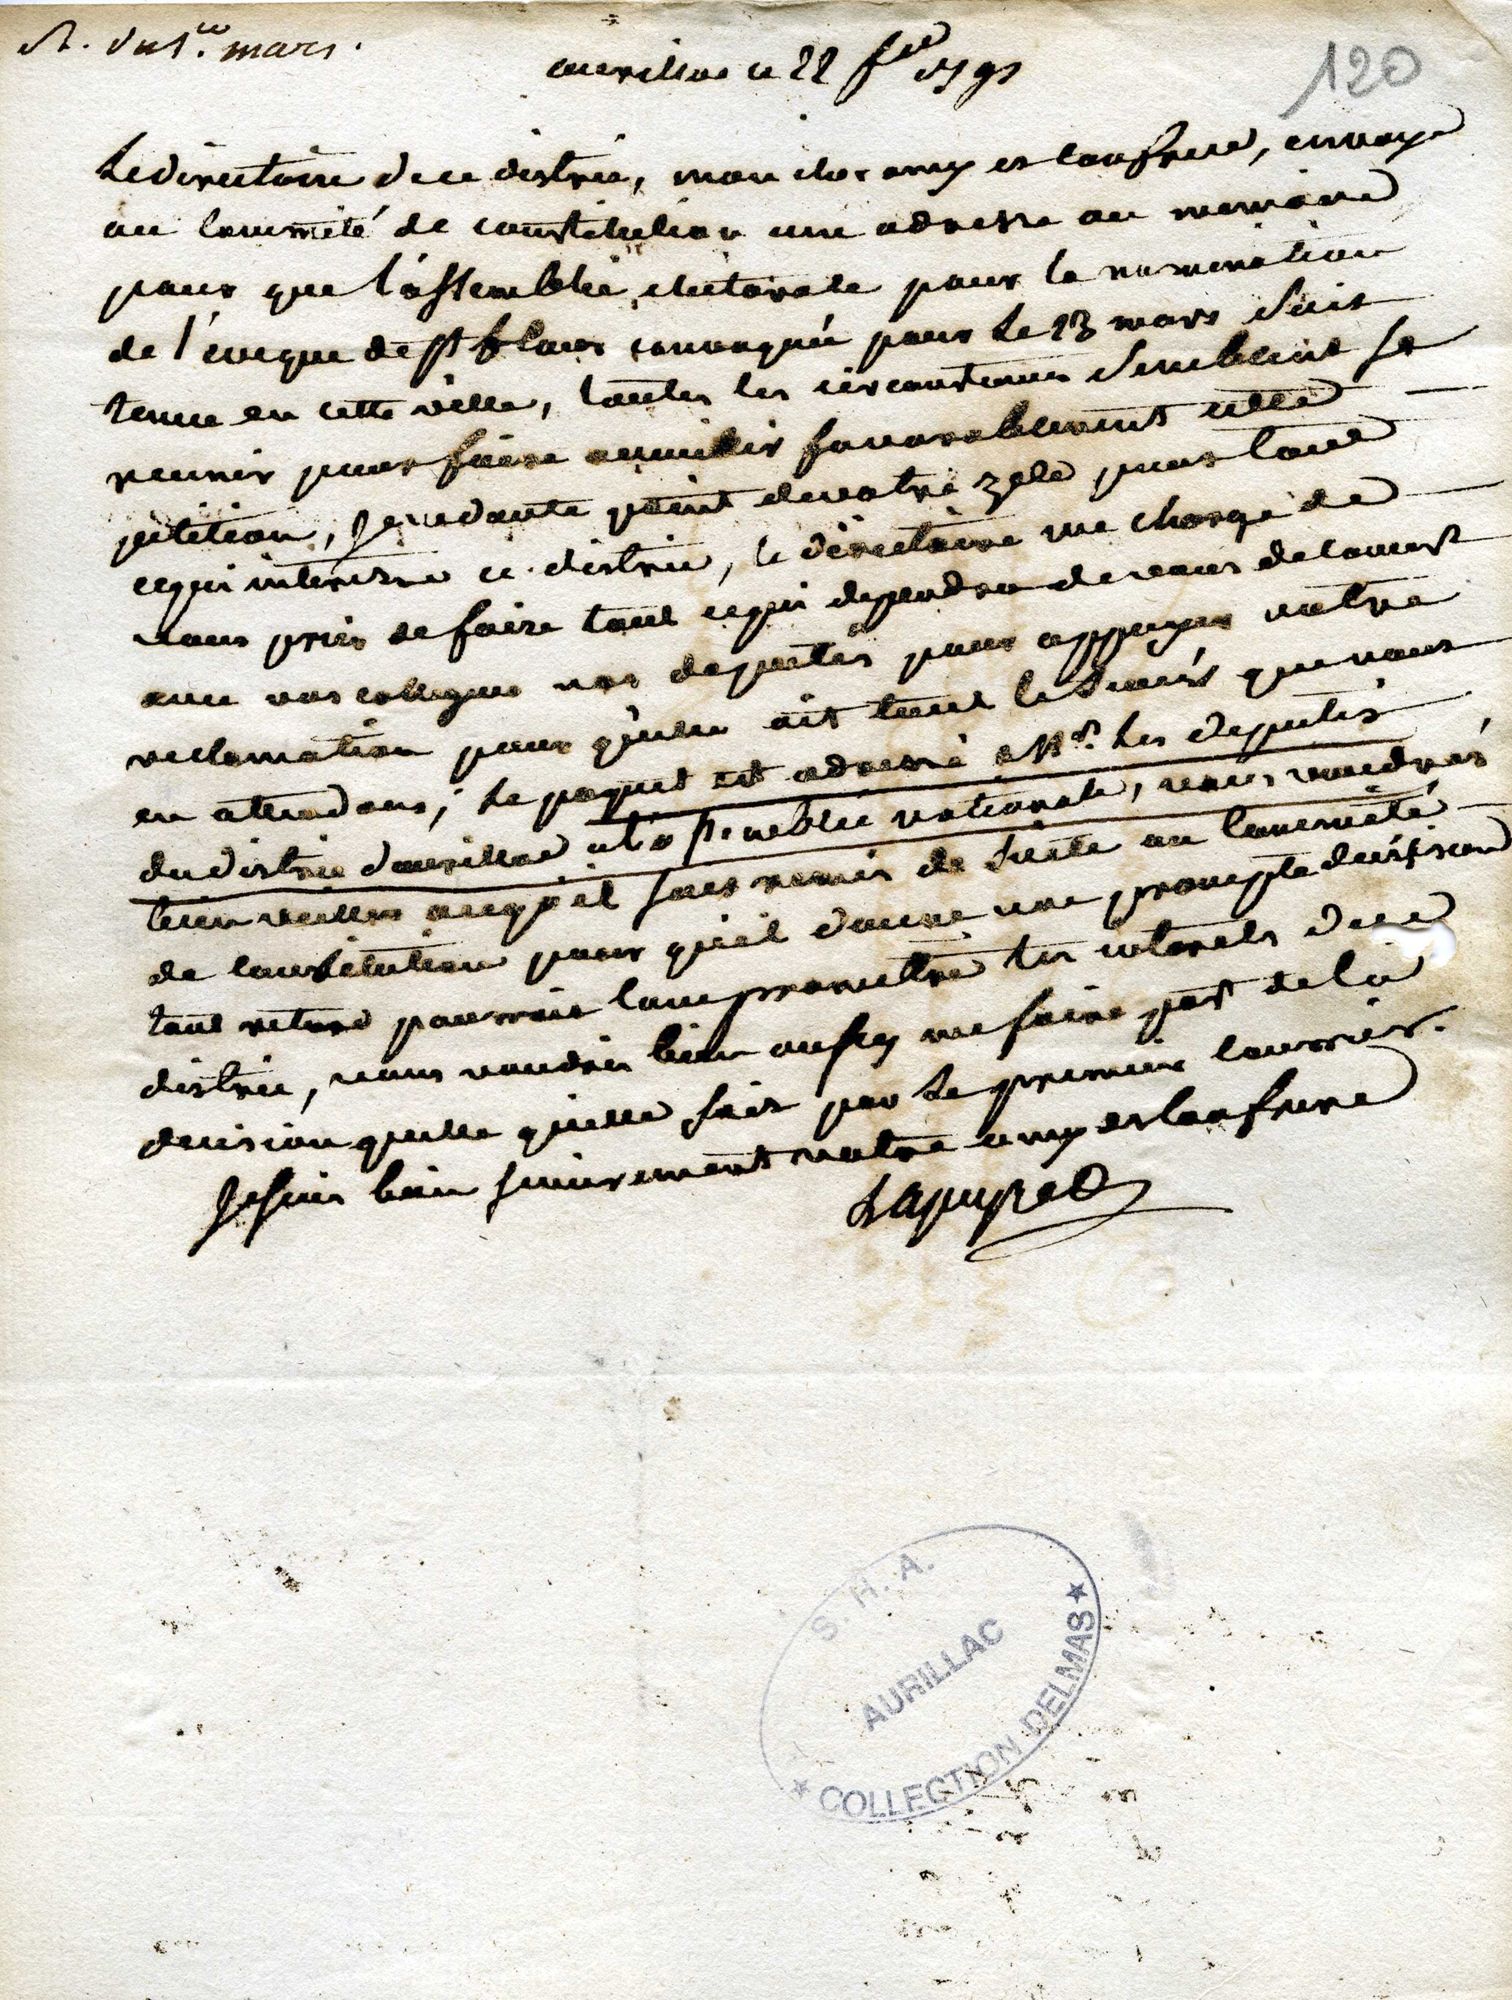 R. du 1er mars.
120
aurillac ce 22 fer 1791
Le directoire de ce district, mon cher amy et confrere, envoye
au Commité de constitution une adresse ou memoire
pour que l'assemblée electorale pour la nomination
de l'eveque de st flour convoquée pour le 13 mars soit
tenue en cette ville, toutes les circonstances semblent se
reunir pour faire accueillir favorablement cette
petition, je ne doute point de votre zele pour tout
ce qui interesse ce district, le directoire me charge de
vous prier de faire tout ce qui dependra de vous de concert
avec vos collegues nos deputés pour appuyer notre
reclamation pour qu'elle ait tout le succés que nous
en attendons; le paquet est adressé a Mrs. les deputés
du district d'aurillac a l'assemblée nationale, vous voudrés
bien veiller a ce qu'il soit remis de suite au Commité
de constitution pour qu'il donne une prompte decission
tout retard pourroit compromettre les interets de ce
district, vous voudrés bien aussy me faire part de la
decision quelle qu'elle soit par le premier courrier.
Je suis bien sincerement votre amy et confrere
Lapeyre
S. H. A.
AURILLAC
COLLECTION DELMAS